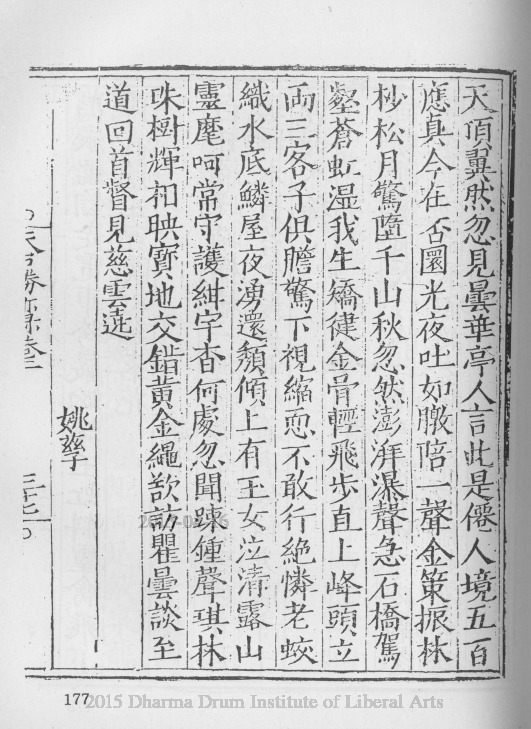 天頂翼然忽見曇華亭人言此是僊人境五百
應真今在否圓光夜吐如朦陪一聲金策振林
杪松月驚墮千山秋忽然澎湃瀑聲急石橋駕
壑蒼虹濕我生矯健金骨輕飛步直上峰頭立
兩三客子俱膽驚下視縮恧不敢行絶憐老蛟
織水底鱗屋夜湧還頹傾上有玉女泣清露山
靈麾呵常守護紺宇杳何處忽聞踈鍾聲琪林
珠樹輝相映寳地交錯黄金繩欲訪瞿曇談至
道回首瞥見慈雲遠
姚孳
天台勝
177
2015-04-16
2015 Dharma Drum Institute of Liberal Arts